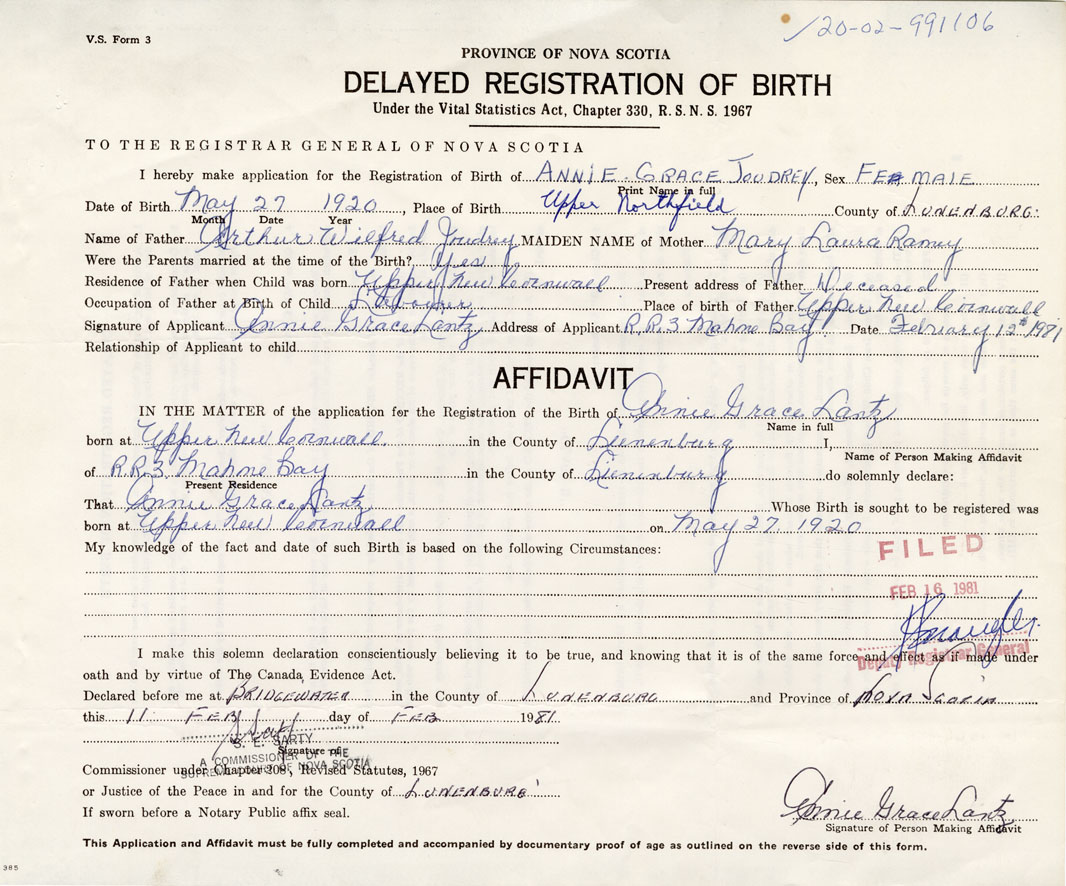 V.S. Form 3
120-02-991106
PROVINCE OF NOVA SCOTIA
DELAYED REGISTRATION OF BIRTH
Under the Vital Statistics Act, Chapter 330, R.S.N.S. 1967
TO THE REGISTRAR GENERAL OF NOVA SCOTIA
I hereby make application for the Registration of Birth of ANNIE GRACE JOUDREY, Sex FEMALE
Print Name in full
Date of Birth May 27 1920, Place of Birth Upper Northfield County of LUNENBURG.
Month Date Year
Name of Father Arthur Wilfred Joudrey MAIDEN NAME of Mother Mary Laura Ramey
Were the Parents married at the time of the Birth? yes
Residence of Father when Child was born Upper New Cornwall Present address of Father Deceased
Occupation of Father at Birth of Child Labourer Place of birth of Father Upper New Cornwall
Signature of Applicant Annie Grace Lantz Address of Applicant R.R.3 Mahne Bay Date Febriary 12th 1981
Relationship of Applicant to child
AFFIDAVIT
IN THE MATTER of the application for the Registration of the Birth of Annie Grace Lantz
Name in full
born at Upper New Cornwall in the County of Lunenburg I,
Name of Person Making Affidavit
of R.R.3. Mahne Bay in the County of Lunenburg do solemnly declare:
Present Residence
That Annie Grace Lantz Whose Birth is sought to be registered was
born at Upper New Cornwall on May 27, 1920
My knowledge of the fact and date of such Birth is based on the following Circumstances:
FILED
FEB 16 1981
Deputy Registrar General
I make this solemn declaration conscientiously believing it to be true, and knowing that it is of the same force and effect as if made under
oath and by virtue of The Canada Evidence Act.
Declared before me at BRIDGEWATER in the County of LUNENBURG and Province of NOVA SCOTIA
this 11 FEB day of FEB 1981
S. E. SARTY
Signature of
A COMMISSIONER OF THE
SUPREME COURT OF NOVA SCOTIA
Commissioner under Chapter 308, Revised Statutes, 1967
or Justice of the Peace in and for the County of LUNENBURG
If sworn before a Notary Public affix seal.
Annie Grace Lantz
Signature of Person Making Affidavit
This Application and Affidavit must be fully completed and accompanied by documentary proof of age as outlined on the reverse side of this form.
385